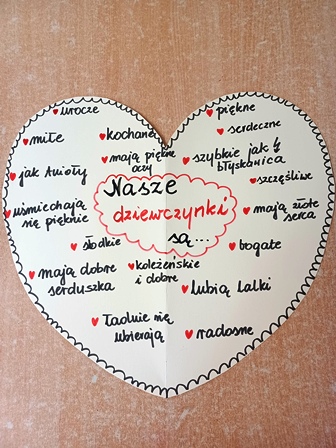 urocze
miłe
kochane
mają piękne
oczy
jak kwiaty
uśmiechają
się pięknie
słodkie
mają dobre
serduszka
koleżeńskie
i dobre
ładnie się
ubierają
Nasze
dziewczynki
są...
piękne
serdeczne
szybkie jak
błyskawica
szczęśliwe
mają złote
serca
bogate
lubią lalki
radosne